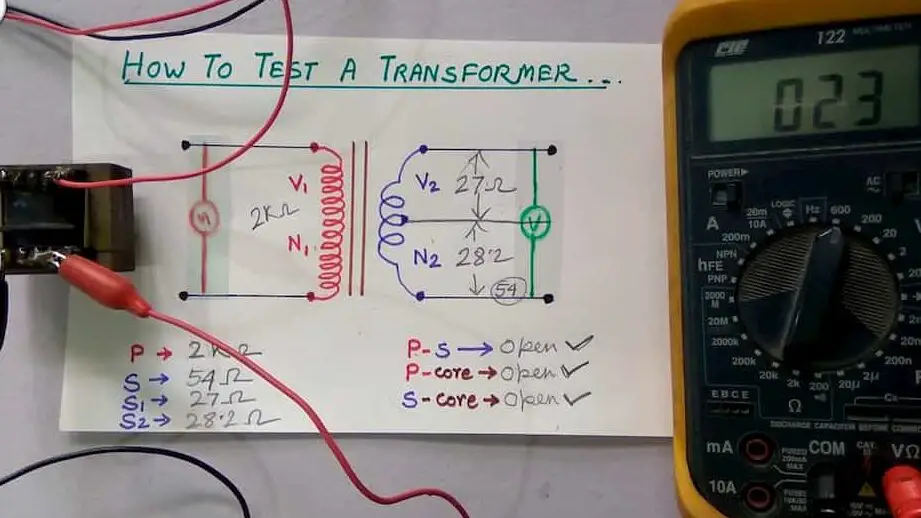 HOW TO TEST A TRANSFORMER...
V₁
2KΩ
N₁
V₂
27Ω
V
N₂
28.2
54
P → 2KΩ
S → 54Ω
S₁ → 27Ω
S₂ → 28.2Ω
P-S → open ✓
P-core → open ✓
S-core → open ✓
CIE
122
MULTIMETER
023
POWER
AC
A
200m
20m
10A
LOGIC
Hz
600
200
20
NPN
hFE
PNP
2000
M
20M
2000k
200k
20k
2k
200
Ω
20µ
2µ
EBCE
DISCHARGE CAPACITOR BEFORE
mA
FUSED
200mA
MAX
COM
CAT.
VΩ
10A
FUSED
MAX